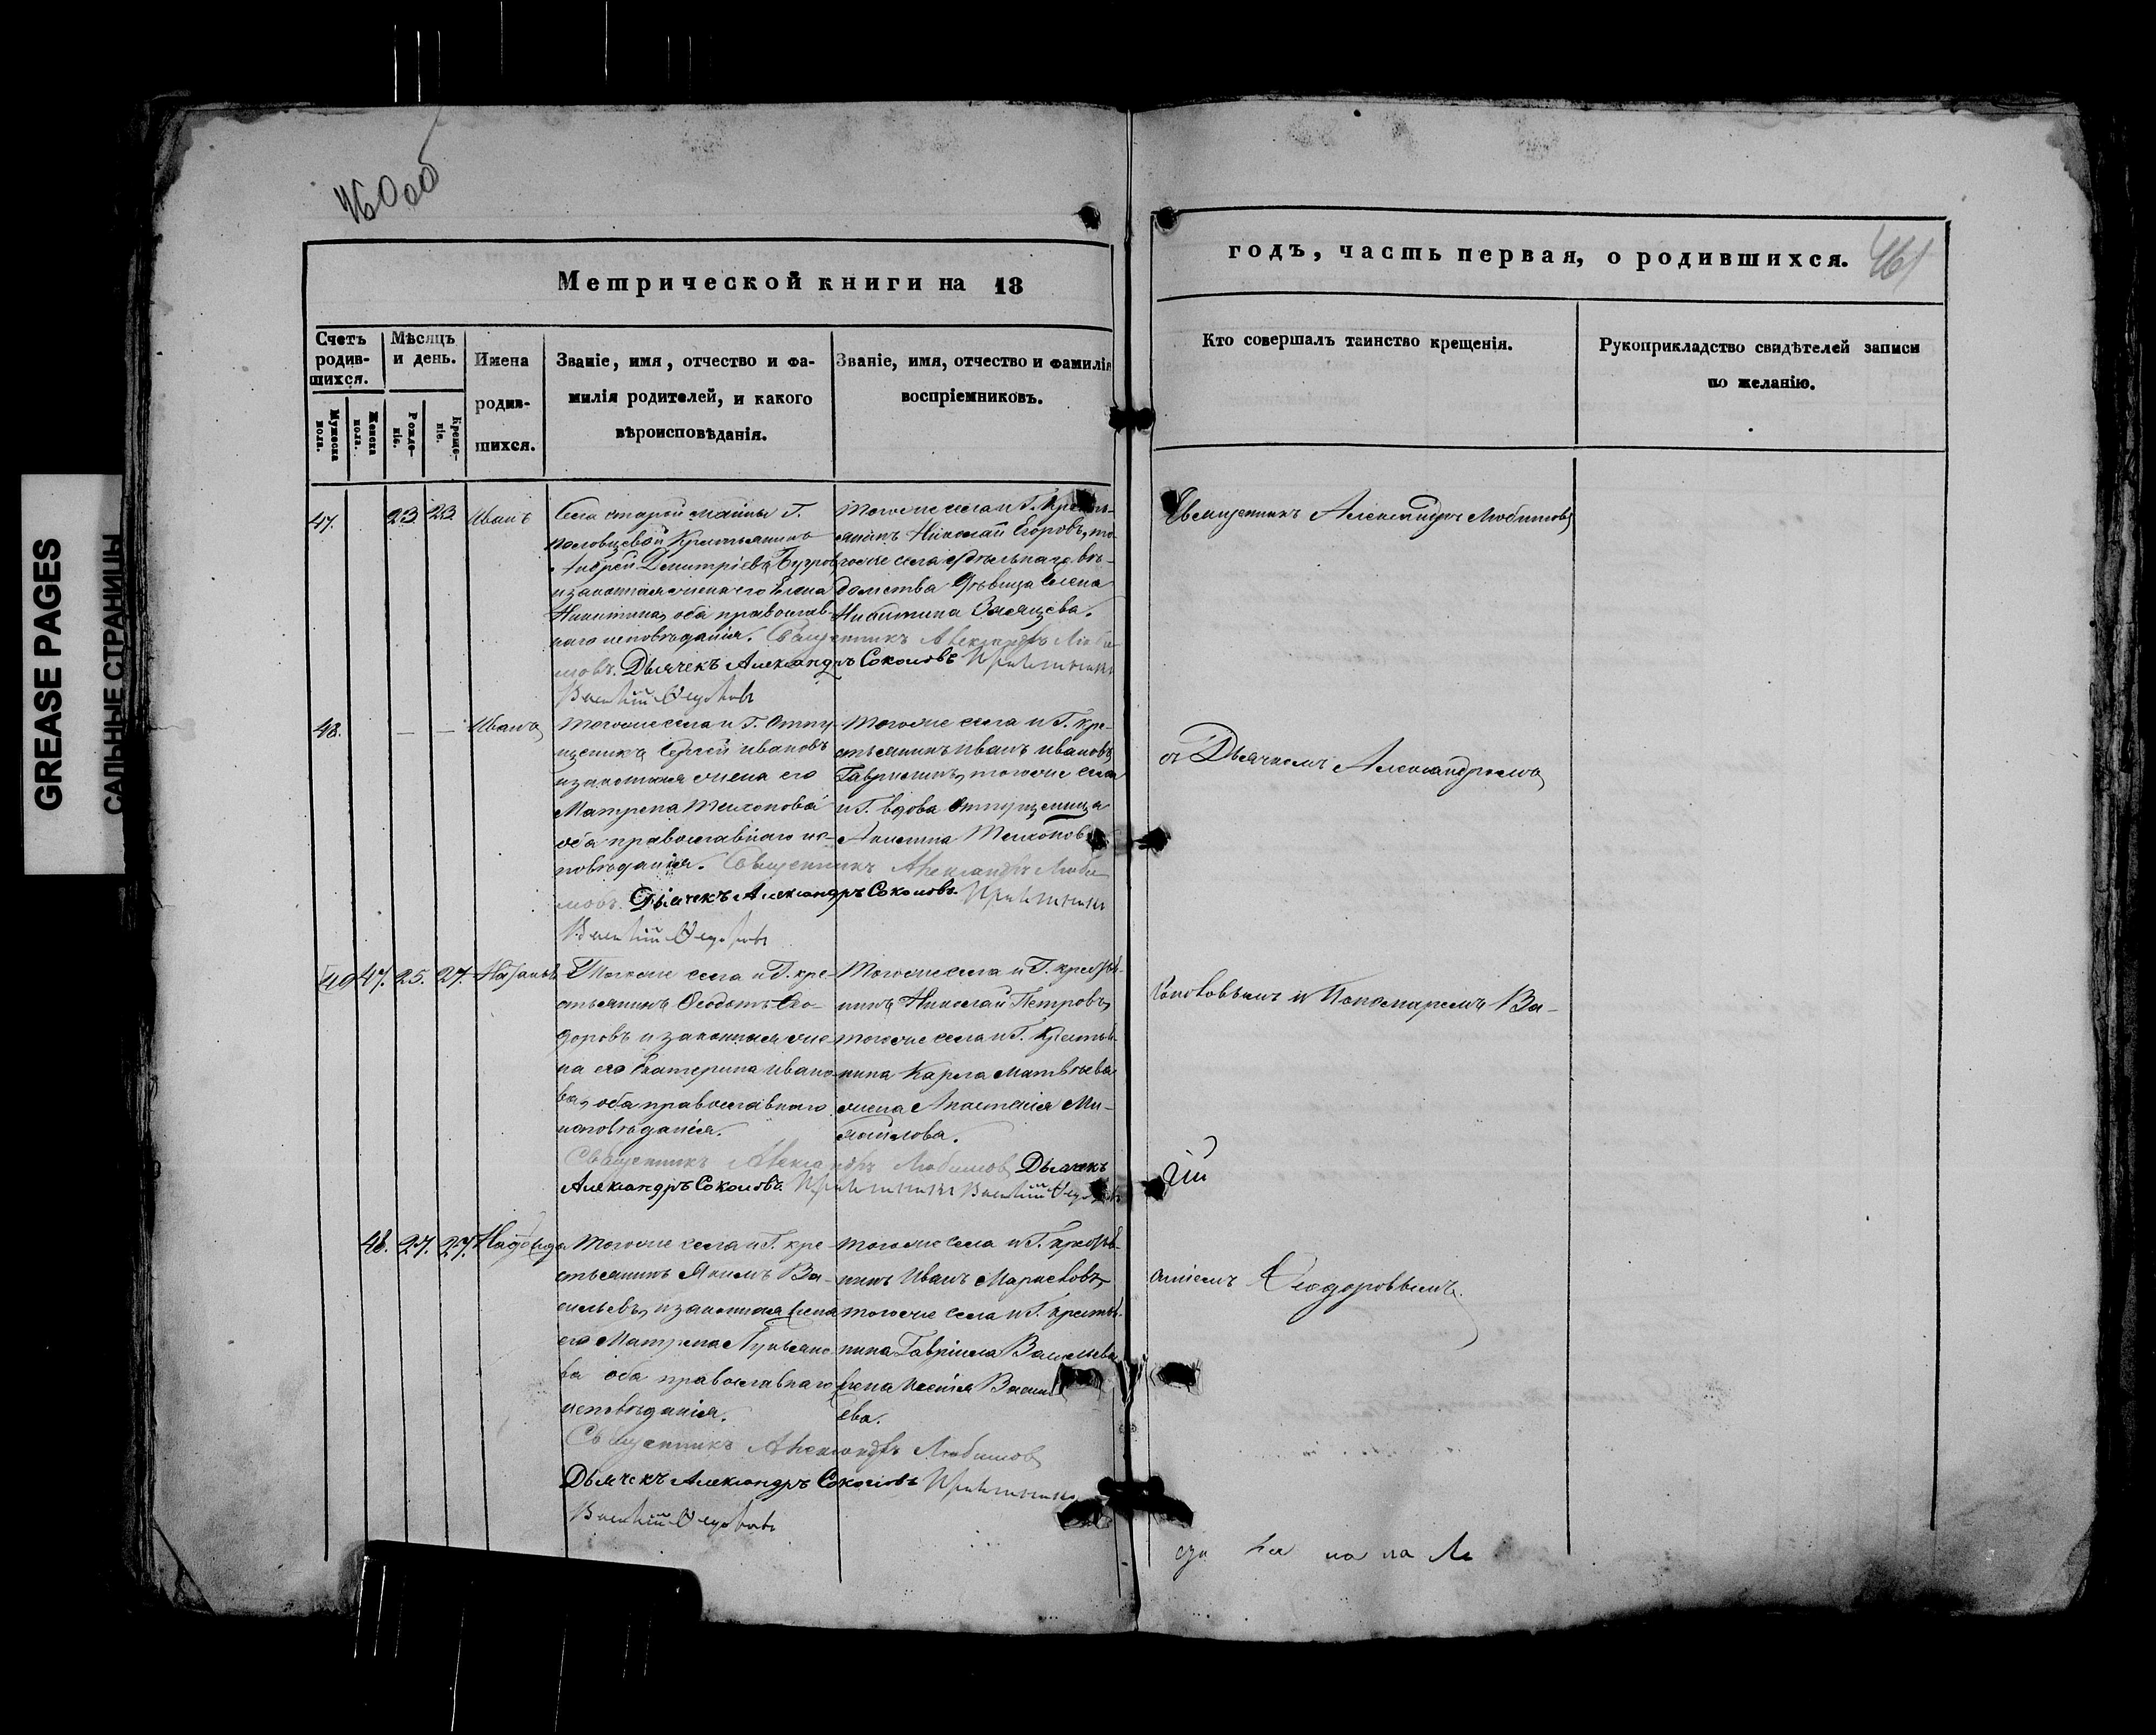 460 об
Метрической книги на 18
Счетъ родившихся.
Мужеска пола.
Женска пола.
Мѣсяцъ и день.
Рожденіе.
Крещеніе.
Имена родившихся.
Званіе, имя, отчество и фамилія родителей, и какого вѣроисповѣданія.
Званіе, имя, отчество и фамилія воспріемниковъ.
47. 23. 23. Иванъ
Села старой майны Г.
Крестьянинъ
Андрей Димитріевъ
и законная жена его Елена
Никитина, оба православ-
наго исповѣданія. Священникъ Александръ Люби-
мовъ. Дьячекъ Александръ Соколовъ
Василій
Тогоже села и Г. Кресть-
янинъ Николай Егоровъ, то-
гоже села удѣльнаго вѣ-
домства дѣвица Елена
Никитина
48. — — Иванъ
Тогоже села и Г. Отпу-
щеникъ Сергей Ивановъ
и законная жена его
Матрена Тихонова
оба православнаго ис-
повѣданія. Священникъ Александръ Люби-
мовъ. Дьячекъ Александръ Соколовъ.
Василій
Тогоже села и Г. кре-
стьянинъ Иванъ Ивановъ
Гавриловъ, тогоже села
и Г. вдова Отпущеница
Тихонова
49 47. 25. 27.
Тогоже села и Г. кре-
стьянинъ Ѳеодотъ Ѳео-
доровъ и законная же-
на его Екатерина Ивано-
ва, оба православнаго
исповѣданія.
Священникъ Александръ Любимовъ Дьячекъ
Александръ Соколовъ. Василій
Тогоже села и Г. крестья-
нинъ Николай Петровъ,
тогоже села и Г. Крестья-
нина Карпа Матвѣева
жена Анастасія Ми-
хайлова.
48. 27. 27. Надежда
Тогоже села и Г. кре-
стьянинъ Якимъ Ва-
сильевъ, и законная жена
его Матрена Лукьяно-
ва оба православнаго
исповѣданія.
Священникъ Александръ Любимовъ
Дьячекъ Александръ Соколовъ
Василій
Тогоже села и Г. крестья-
нинъ Иванъ
тогоже села и Г. крестья-
нина Гавріила Васильева
жена Ксенія Василь-
ева.
годъ, часть первая, о родившихся.
461
Кто совершалъ таинство крещенія.
Рукоприкладство свидѣтелей записи по желанію.
Священникъ Александръ Любимовъ
съ Дьячкомъ Александромъ
Соколовымъ и Пономаремъ Ва-
силіемъ Ѳеодоровымъ.
GREASE PAGES
САЛЬНЫЕ СТРАНИЦЫ